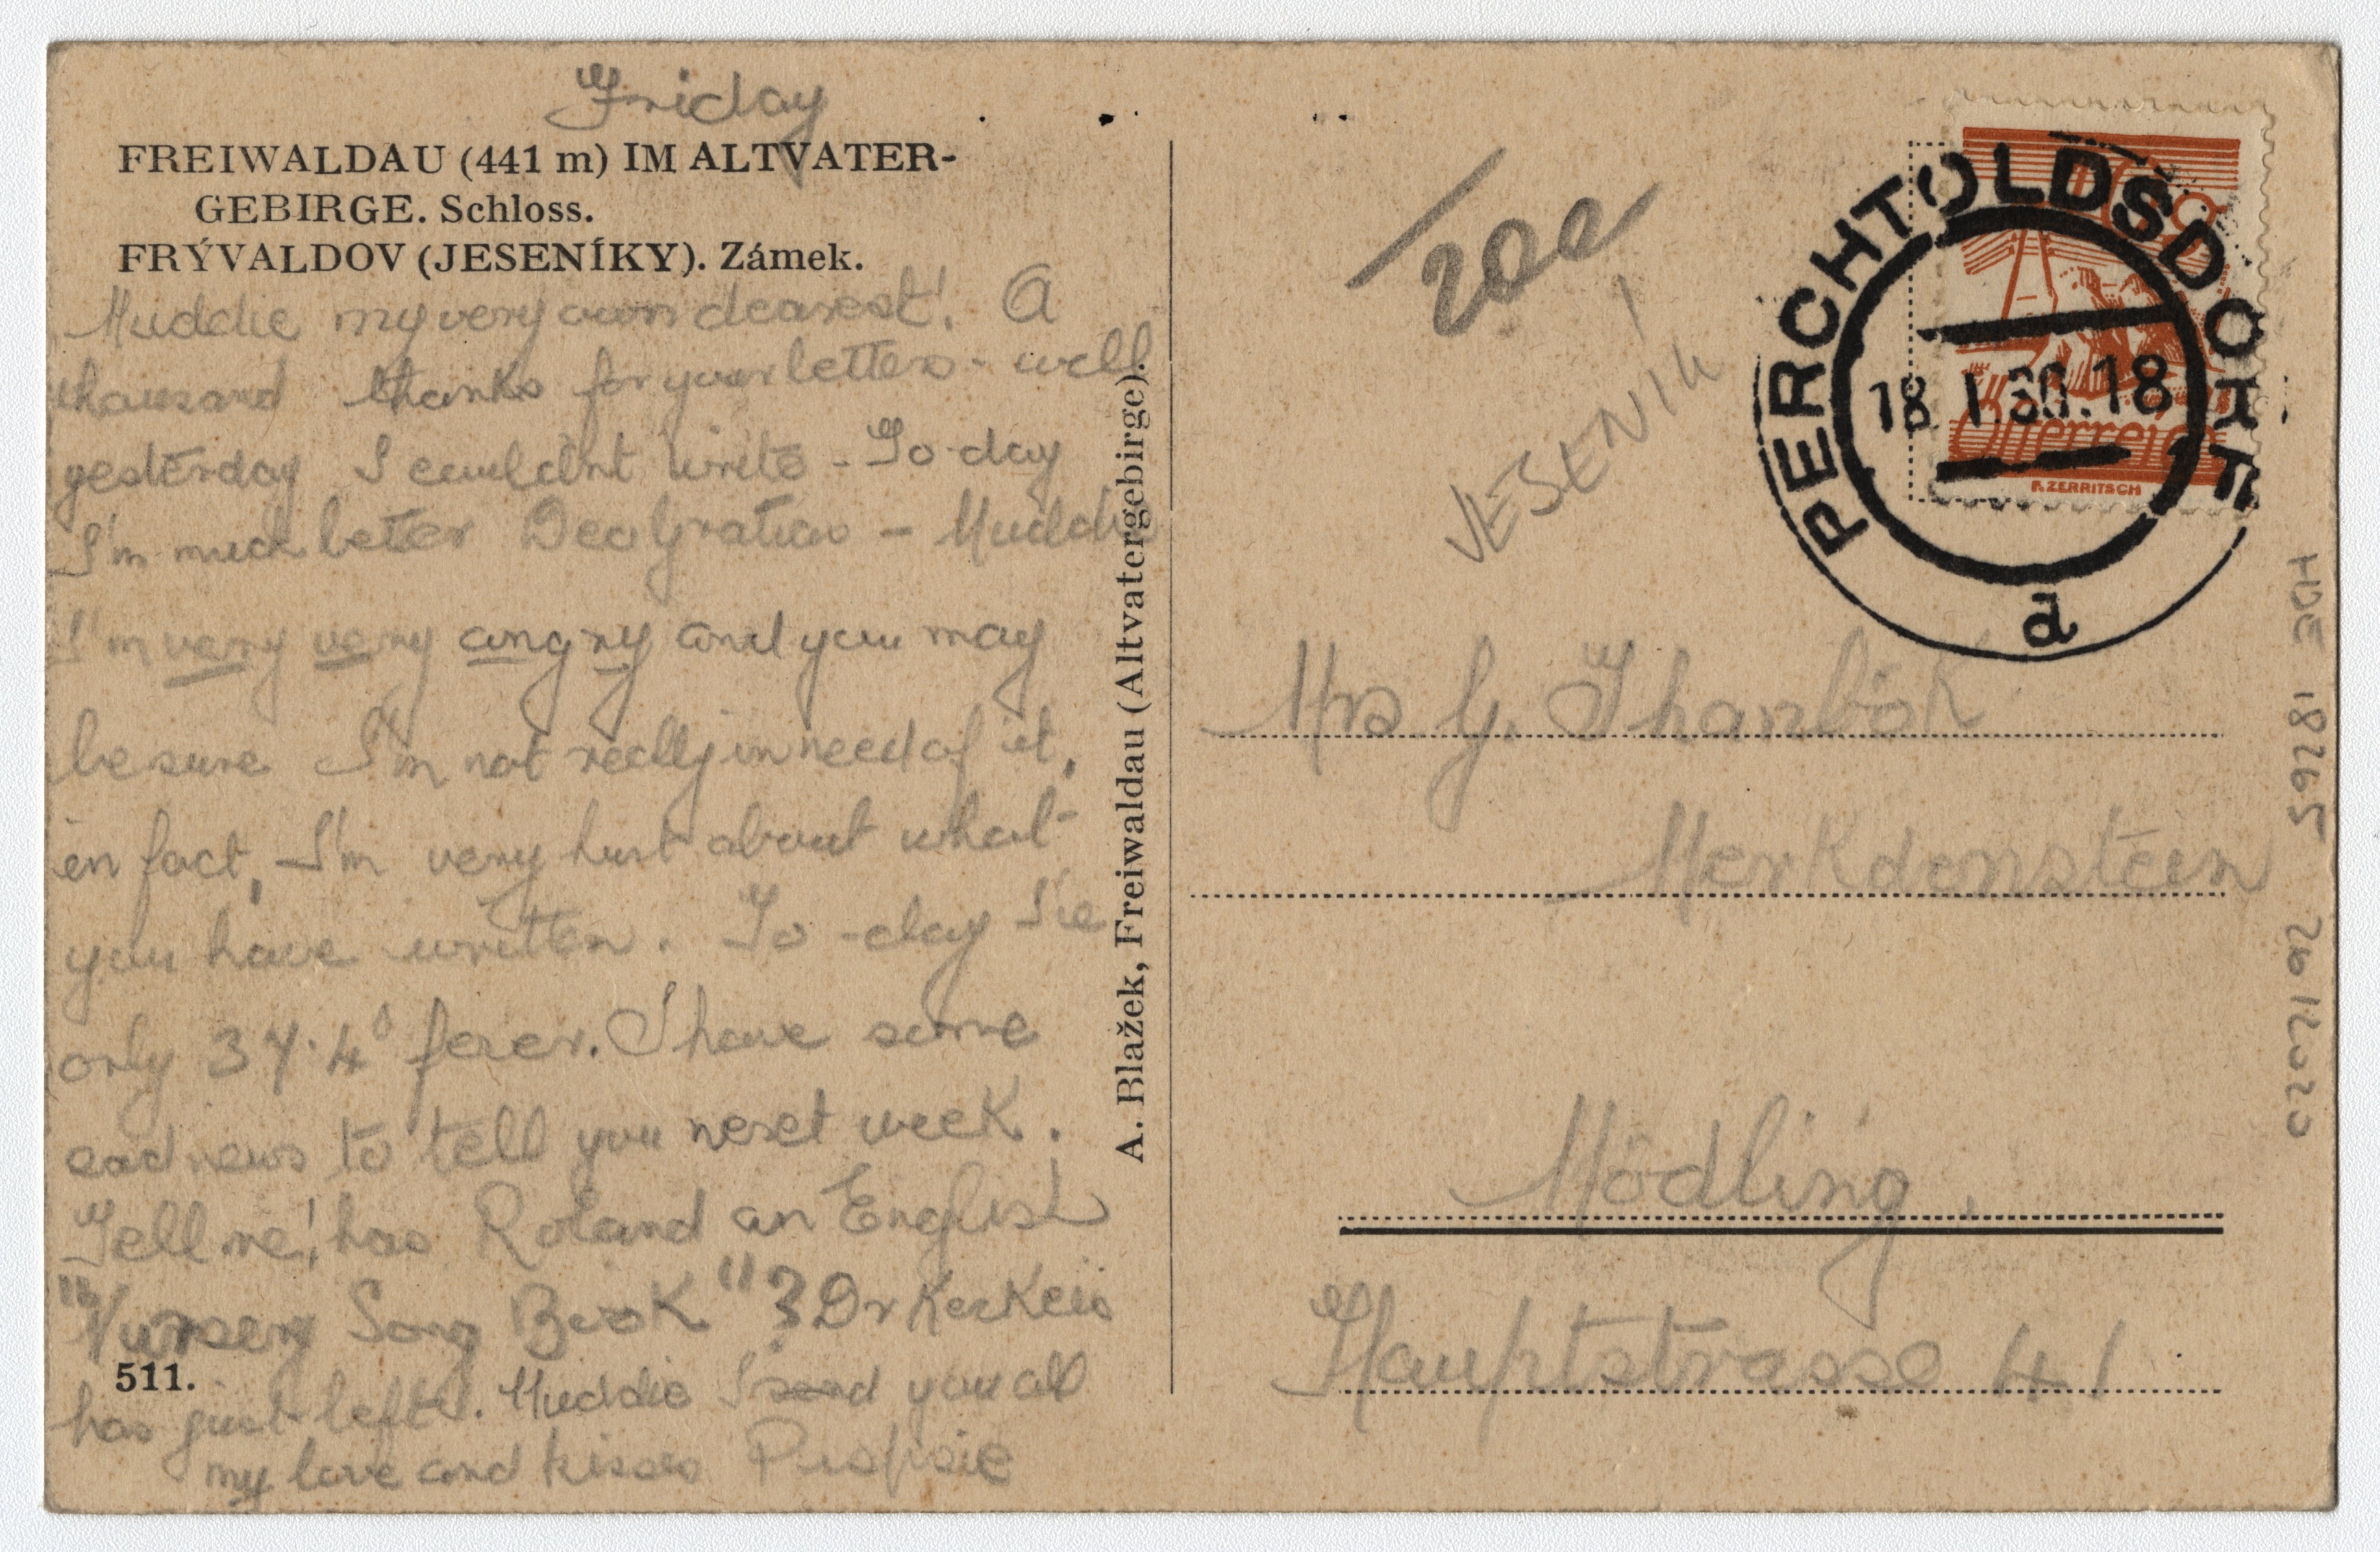 Friday
FREIWALDAU (441 m) IM ALTVATER-
GEBIRGE. Schloss.
FRÝVALDOV (JESENÍKY). Zámek.
Muddie my very own dearest! A
thousand thanks for your letters - well
yesterday I couldn't write - To-day
I'm much better Deo Gratias - Muddie
I'm very very angry and you may
be sure I'm not really in need of it,
in fact, I'm very hurt about what
you have written. To-day I've
only 37.4° fever. I have some
sad news to tell you next week.
Tell me! has Roland an English
"Nursery Song Book"? Dr
has just left. Muddie I send you all
my love and kisses
511.
A. Blažek, Freiwaldau (Altvatergebirge).
200
JESENIK !
PERCHTOLDSDORF
18.I.30.18
a
Österreich
F. ZERRITSCH
Mrs G. Thanbök
Merkdenstein
Mödling.
Hauptstrasse 41